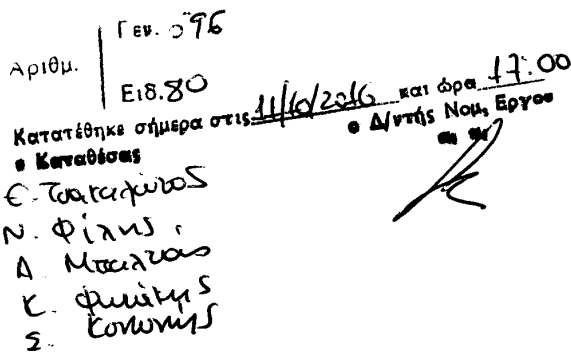 Αριθμ.
Γεν. 096
Ειδ. 80
Κατατέθηκε σήμερα στις 11/10/2016 και ώρα 17:00
ο Καταθέσας
ο Δ/ντής Νομ. Έργου
Ε. Τσακαλώτος
Ν. Φίλης
Α. Μπαλτας
Κ. Φωτάκης
Σ. Κονονής